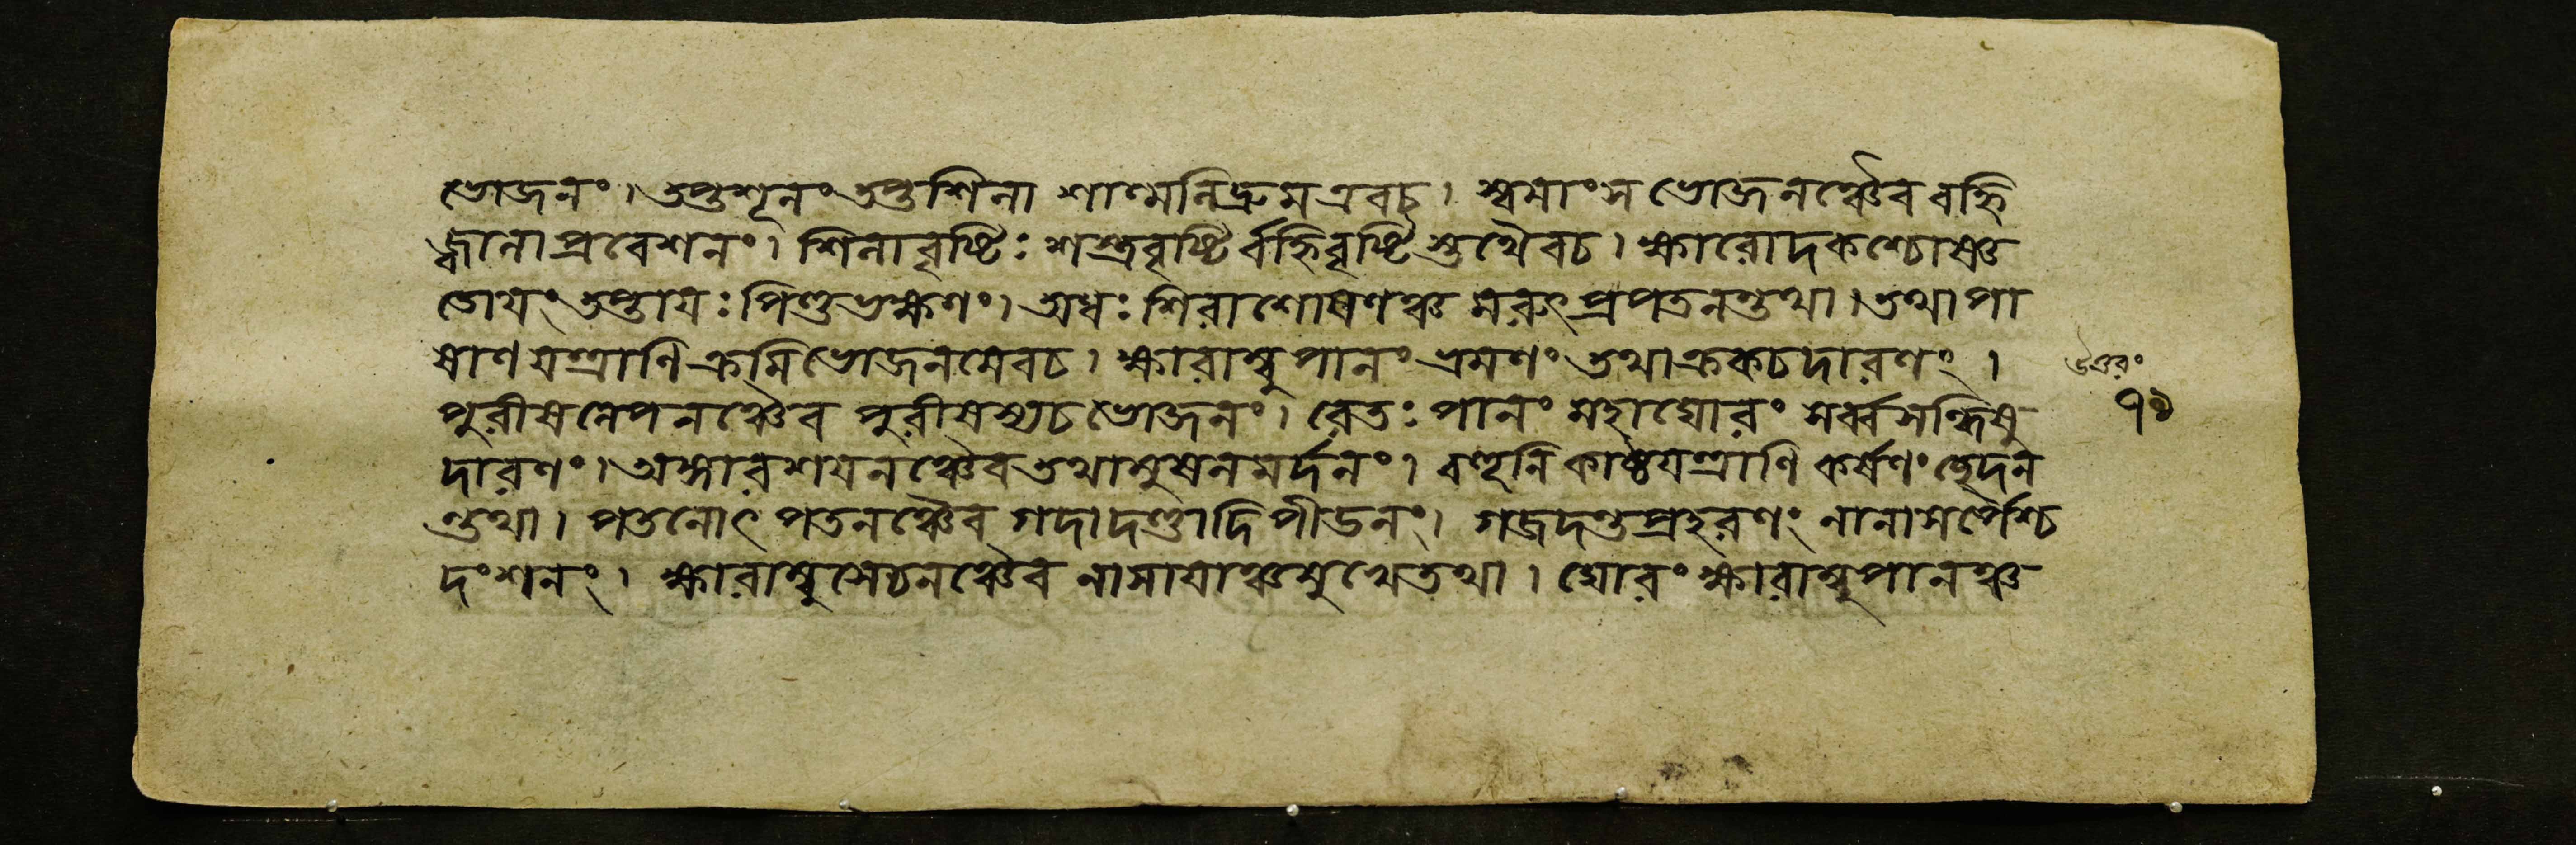 ভোজনং। তপ্তশূলং তপ্তশিলা শাল্মলিদ্রুম এবচ। স্বমাংস ভোজনঞ্চৈব বহ্নি
জ্বালাপ্রবেশনং। শিলাবৃষ্টিঃ শস্ত্রবৃষ্টির্বহ্নিবৃষ্টিস্তথৈবচ। ক্ষারোদকশ্চোষ্ণ
তোয়ং তপ্তায়ঃ পিণ্ডভক্ষণং। অধঃ শিরাশোষণঞ্চ মরুৎপ্রপতনন্তথা। তথা পা
ষাণ যন্ত্রাণি ক্রমিভোজনমেবচ। ক্ষারাম্বুপানং ভ্রমণং তথা ক্রকচদারণং।
পুরীষলেপনঞ্চৈব পুরীষস্যচ ভোজনং। রেতঃ পানং মহাঘোরং সর্ব্বসন্ধিষু
দারণং। অঙ্গারশয়নঞ্চৈব তথা মুষলমর্দনং। বহূনি কাষ্ঠযন্ত্রাণি কর্ষণং ছেদন
ন্তথা। পতনোৎ পতনঞ্চৈব গদাদণ্ডাদি পীডনং। গজদন্তপ্রহরণং নানাসর্পৈশ্চ
দংশনং। ক্ষারাম্বুসেচনঞ্চৈব নাসায়াঞ্চ মুখে তথা। ঘোরং ক্ষারাম্বুপানঞ্চ